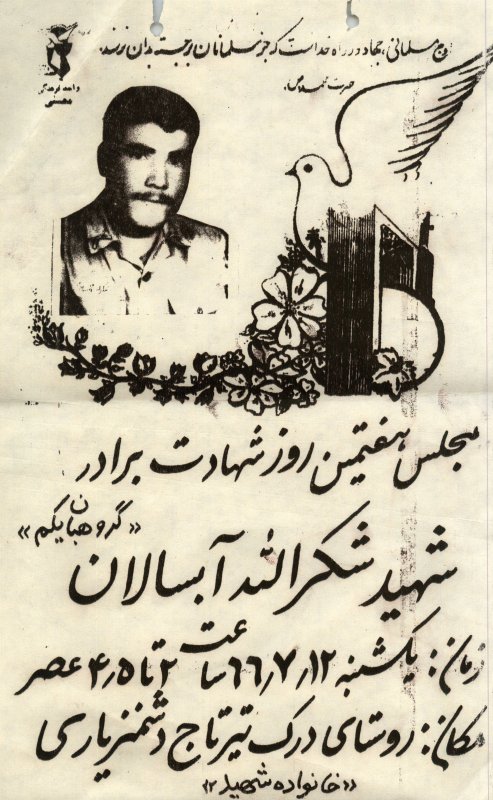 اوج مسلمانی، جهاد در راه خداست که جز مسلمانان برجسته بدان نرسند.
حضرت محمد ص
واحد فرهنگی
ممسنی
مجلس هفتمین روز شهادت برادر
«گروهبان یکم»
شهید شکرالله آبسالان
زمان: یکشنبه ۶۶٫۷٫۱۲ ساعت ۲ تا ۴٫۵ عصر
مکان: روستای درک تیرتاج دشمنزیاری
«خانواده شهید»